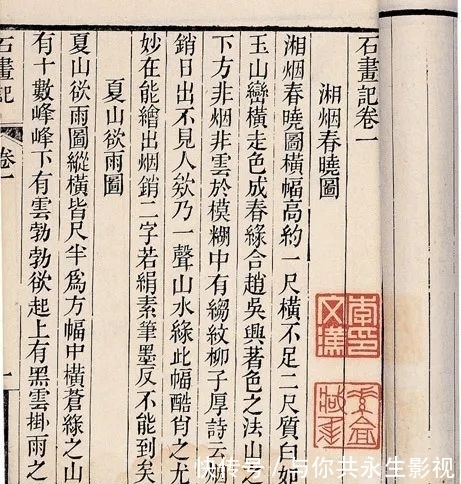 石畫記卷一
湘烟春曉圖
湘烟春曉圖橫幅高約一尺橫不足二尺質白如
玉山巒橫走色成春綠合趙吳興著色之法山之
下方非烟非雲於模糊中有縐紋柳子厚詩云烟
銷日出不見人欸乃一聲山水綠此幅酷肖之尤
妙在能繪出烟銷二字若絹素筆墨反不能到矣
夏山欲雨圖
夏山欲雨圖縱橫皆尺半爲方幅中橫蒼綠之山
有十數峰峰下有雲勃勃欲起上有黑雲掛雨之
石畫記
卷一
一
快传号 / 与你共永生影视